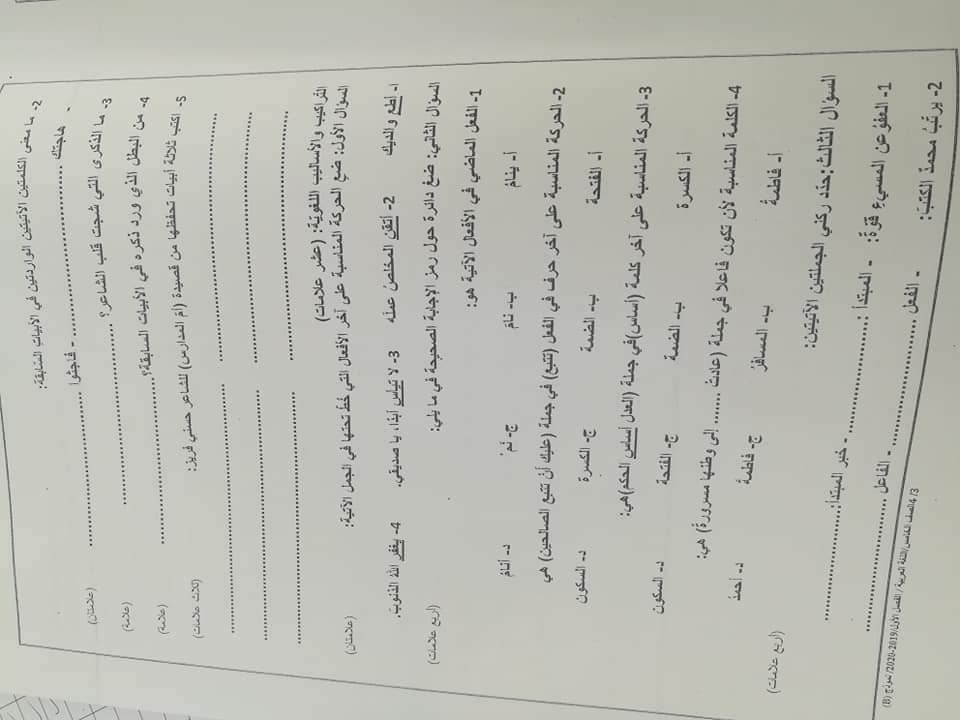 2- ما معنى الكلمتين الآتيتين الواردتين في الأبيات السابقة: (علامتان)
- هاجتك ................ - فاجثوا ................
3- ما الذكرى التي شجت قلب الشاعر؟ ................ (علامة)
4- من البطل الذي ورد ذكره في الأبيات السابقة؟ ................ (علامة)
5- اكتب ثلاثة أبيات تحفظها من قصيدة (أم المدارس) للشاعر حسني فريز: (ثلاث علامات)
................ ................
................ ................
................ ................
التراكيب والأساليب اللغوية: (عشر علامات)
السؤال الأول: ضع الحركة المناسبة على آخر الأفعال التي خُطّ تحتها في الجمل الآتية: (علامتان)
1- أطع والديك 2- أتقن المخلص عمله 3- لا تيأس أبدًا، يا صديقي. 4- يغفر الله الذنوب.
السؤال الثاني: ضعْ دائرة حول رمز الإجابة الصحيحة في ما يلي: (أربع علامات)
1- الفعل الماضي في الأفعال الآتية هو:
أ- ينامُ ب- نامَ ج- نَمْ د- أنامُ
2- الحركة المناسبة على آخر حرف في الفعل (تتبع) في جملة (عليك أن تتبع الصالحين) هي
أ- الفتحة ب- الضمة ج- الكسرة د- السكون
3- الحركة المناسبة على آخر كلمة (أساس) في جملة (العدل أساس الحكم) هي:
أ- الكسرة ب- الضمة ج- الفتحة د- السكون
4- الكلمة المناسبة لأن تكون فاعلا في جملة (عادتْ ...... إلى وطنها مسرورةً) هي:
أ- فاطمةُ ب- المسافرُ ج- فاطمةَ د- أحمدُ
السؤال الثالث: حدد ركني الجملتين الآتيتين: (أربع علامات)
1- العفوُ عن المسيءِ قوّةٌ: - المبتدأ: ................ - خبر المبتدأ: ................
2- يرتّبُ محمدٌ الكتبَ: - الفعل ................ - الفاعل ................
3/4 الصف الخامس/اللغة العربية / الفصل الأول/2019-2020/ نموذج (B)